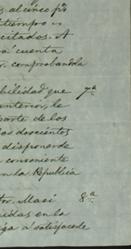 al cinco p%
tiempo in
citados. A
a cuenta
r. comprobandola
bilidad que 7ª
anterior, le
parte de los
as doscientos
disponerde
n consonente
en la República
tor. Masi 8ª
uidas en la
ja a satisfacede